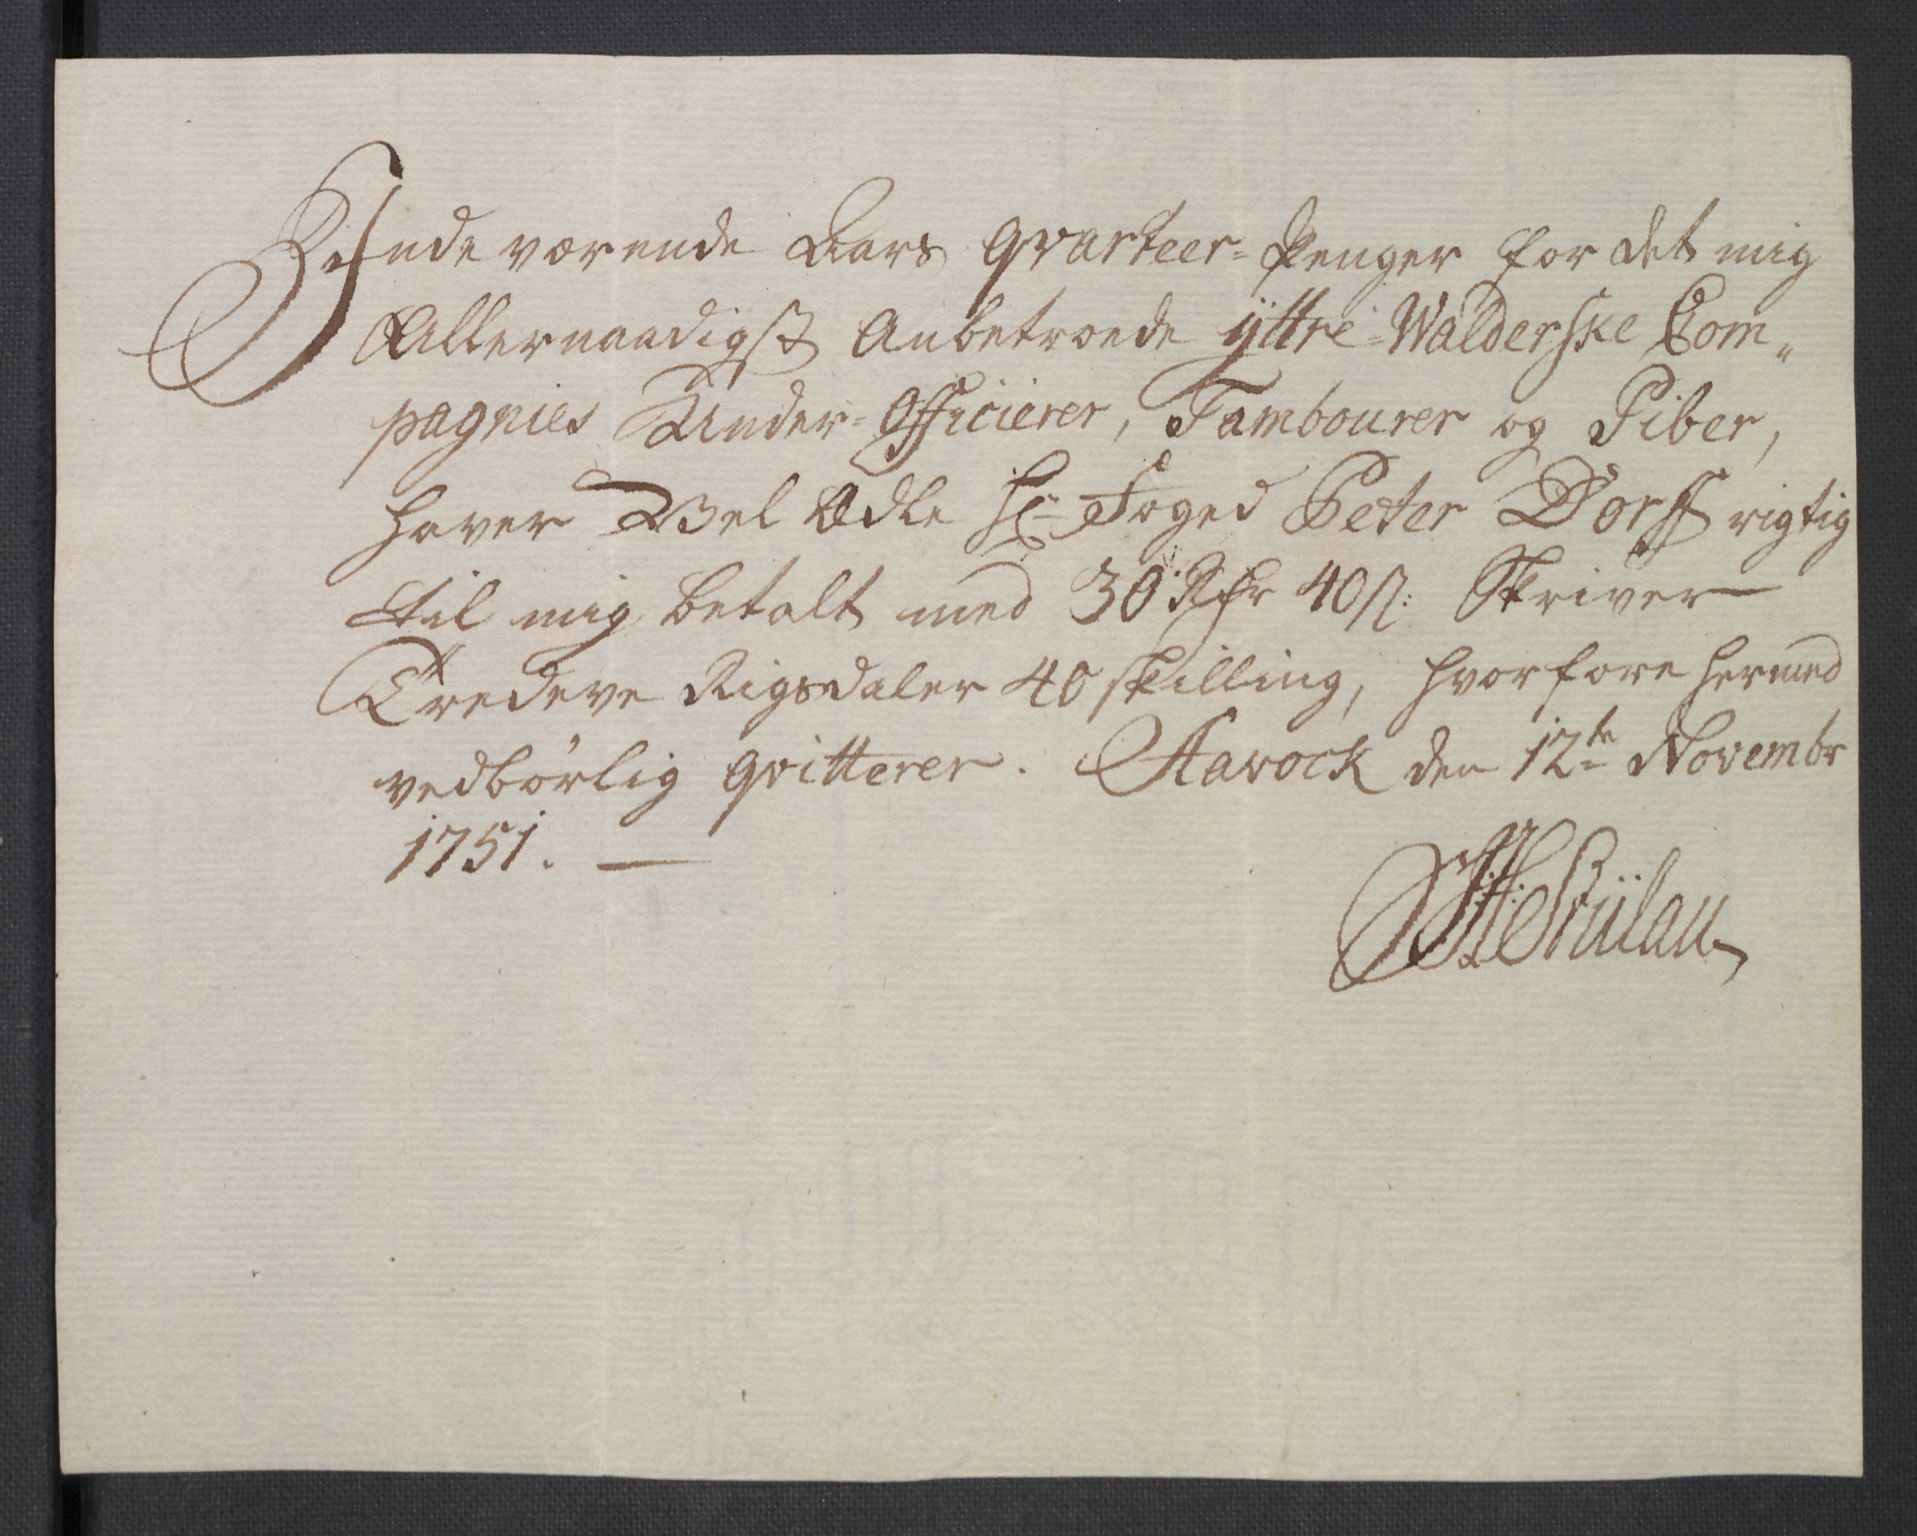 Indeværende Aars Qvarteer-Penger for det mig
Allernaadigst Anbetroede Yttre-Walderske Com„
pagnies Under-Officierer, Tambourer og Piber,
haver Wel Ædle Hr Foged Peter Dorff rigtig
til mig betalt med 30 Rdr 40 s: Skriver
Tredeve Rigsdaler 40 skilling, hvorfore hermed
vedbørlig qvitterer. Stavock den 12te Novembr
1751. —